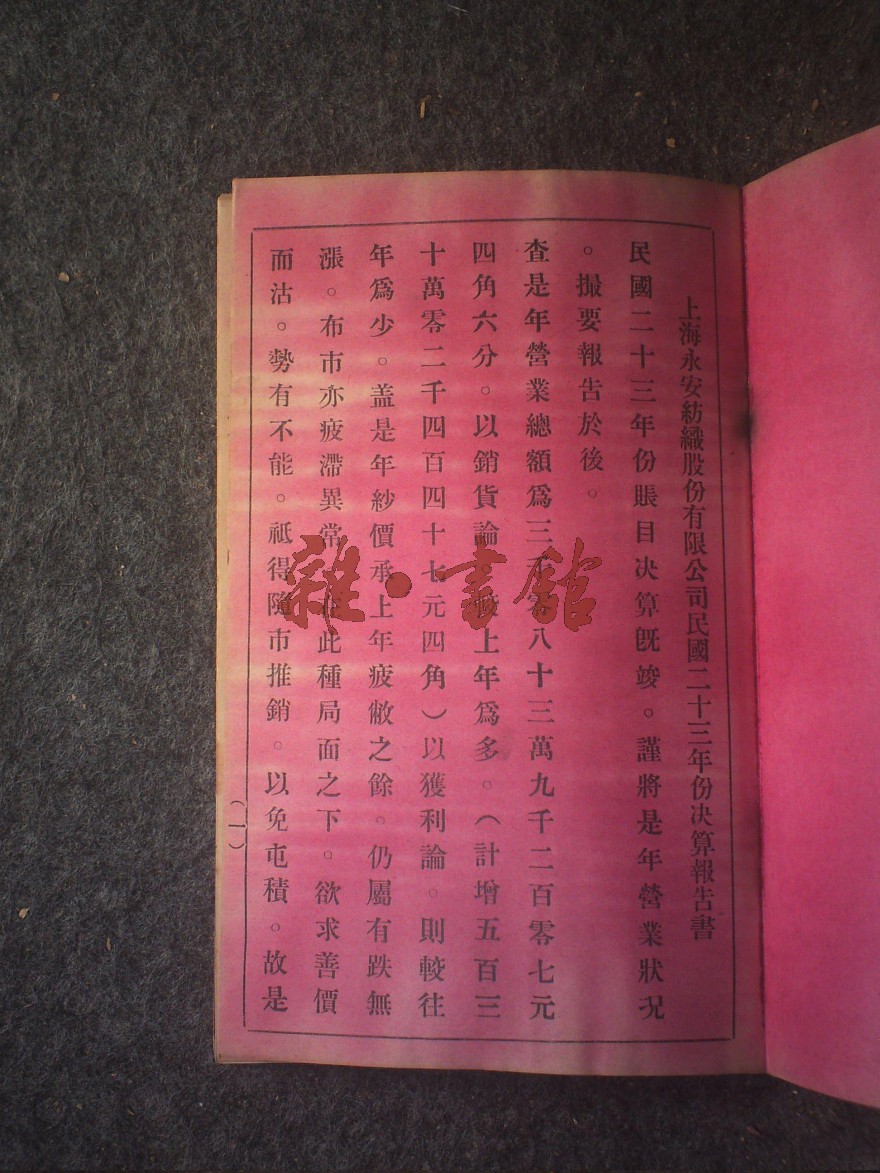 上海永安紡織股份有限公司民國二十三年份決算報告書
民國二十三年份賬目決算旣竣。謹將是年營業狀况
。撮要報告於後。
查是年營業總額爲三千零八十三萬九千二百零七元
四角六分。以銷貨論 較上年爲多。(計增五百三
十萬零二千四百四十七元四角)以獲利論。則較往
年爲少。盖是年紗價承上年疲敝之餘。仍屬有跌無
漲。布市亦疲滯異常 此種局面之下。欲求善價
而沽。勢有不能。祗得隨市推銷。以免屯積。故是
(一)
雜·書館